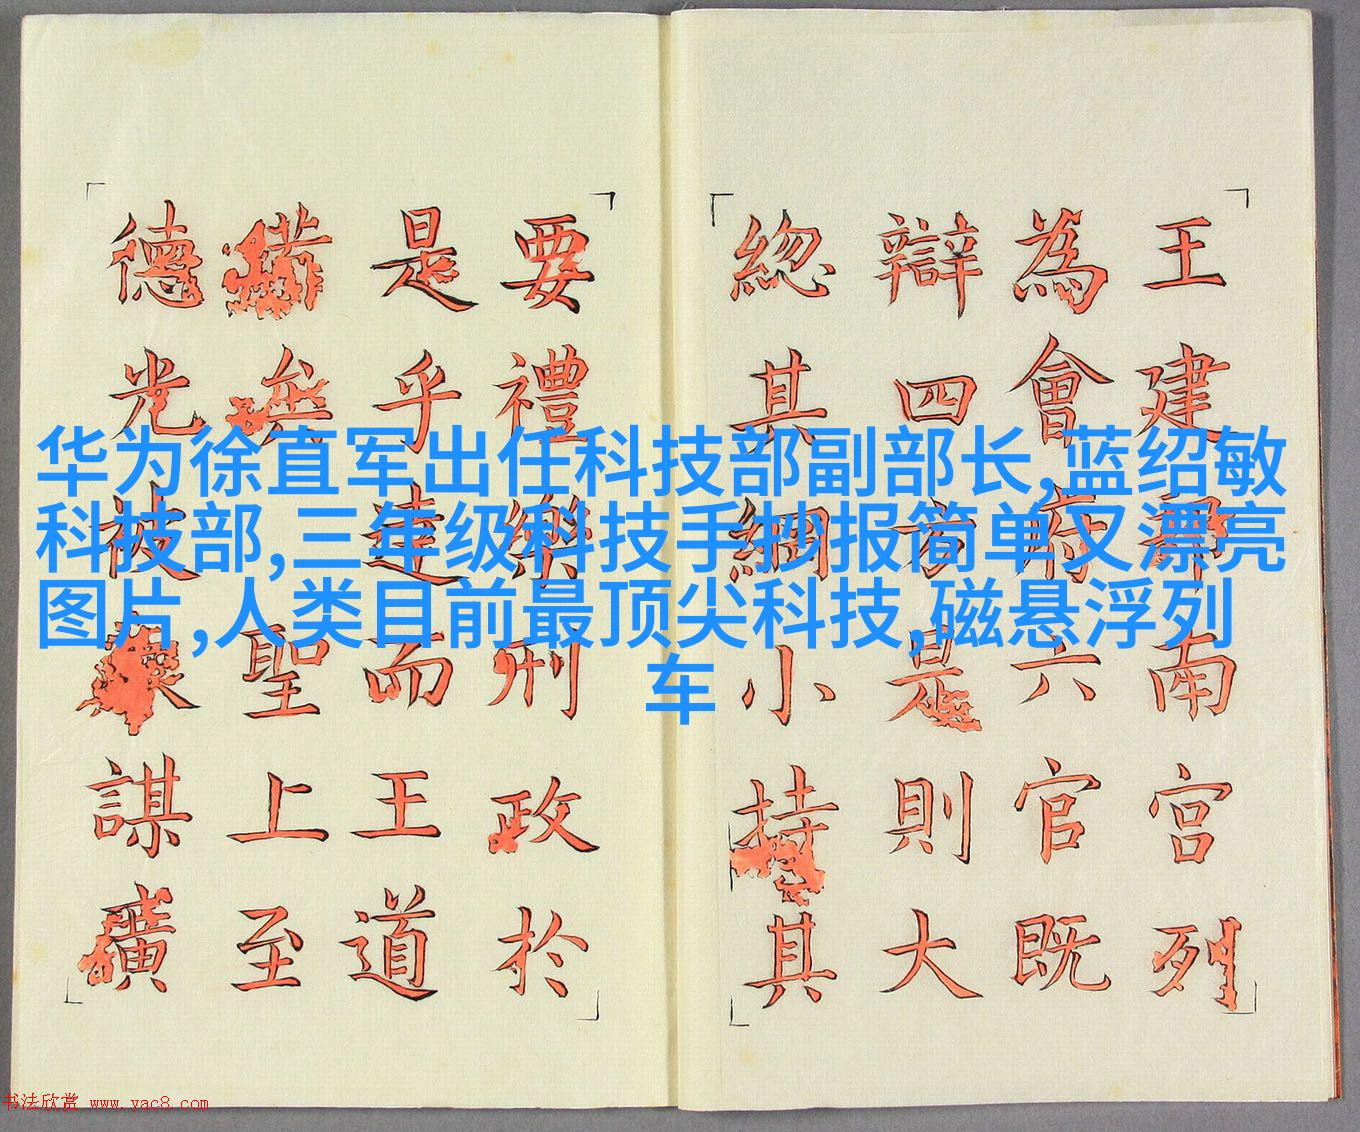 华为徐直军出任科技部副部长,蓝绍敏
科技部,三年级科技手抄报简单又漂亮
图片,人类目前最顶尖科技,磁悬浮列
车
王建南宫列
為會府六官既
辯四方是則大
緫其綱小持其
要禮樂刑政於
是乎達而王道
備矣聖上至
德光被謀廣
书法欣赏 www.yac8.com